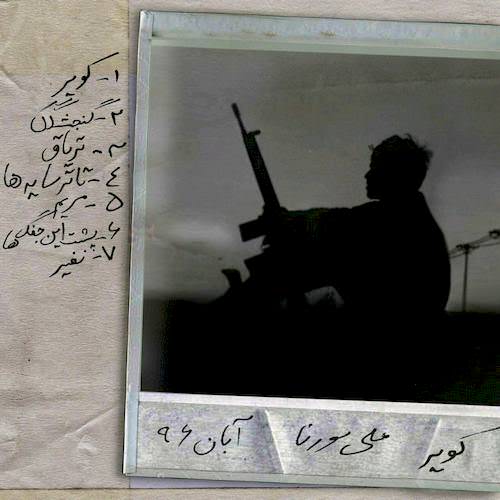 ۱- کویر
۲- گنجشگک
۳- تریاق
٤- تآتر سایه ها
۵- مریم
۶- پشت این جنگل ها
۷- نفیر
کویر علی سورنا آبان ۹۶